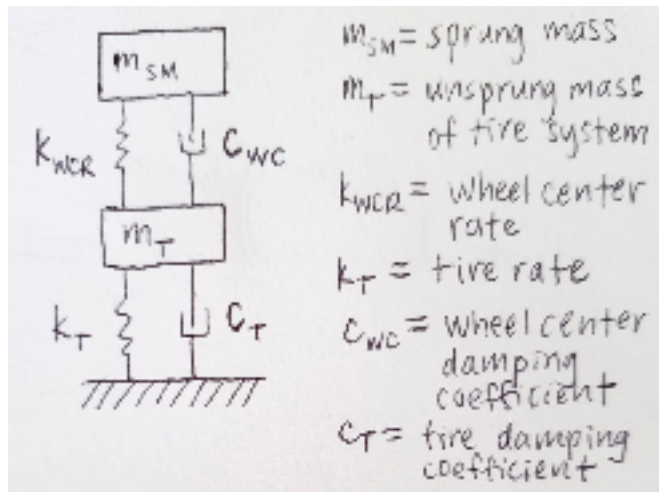 m_SM
k_WCR
c_WC
m_T
k_T
c_T
m_SM = sprung mass
m_T = unsprung mass
of tire system
k_WCR = wheel center
rate
k_T = tire rate
c_WC = wheel center
damping
coefficient
c_T = tire damping
coefficient